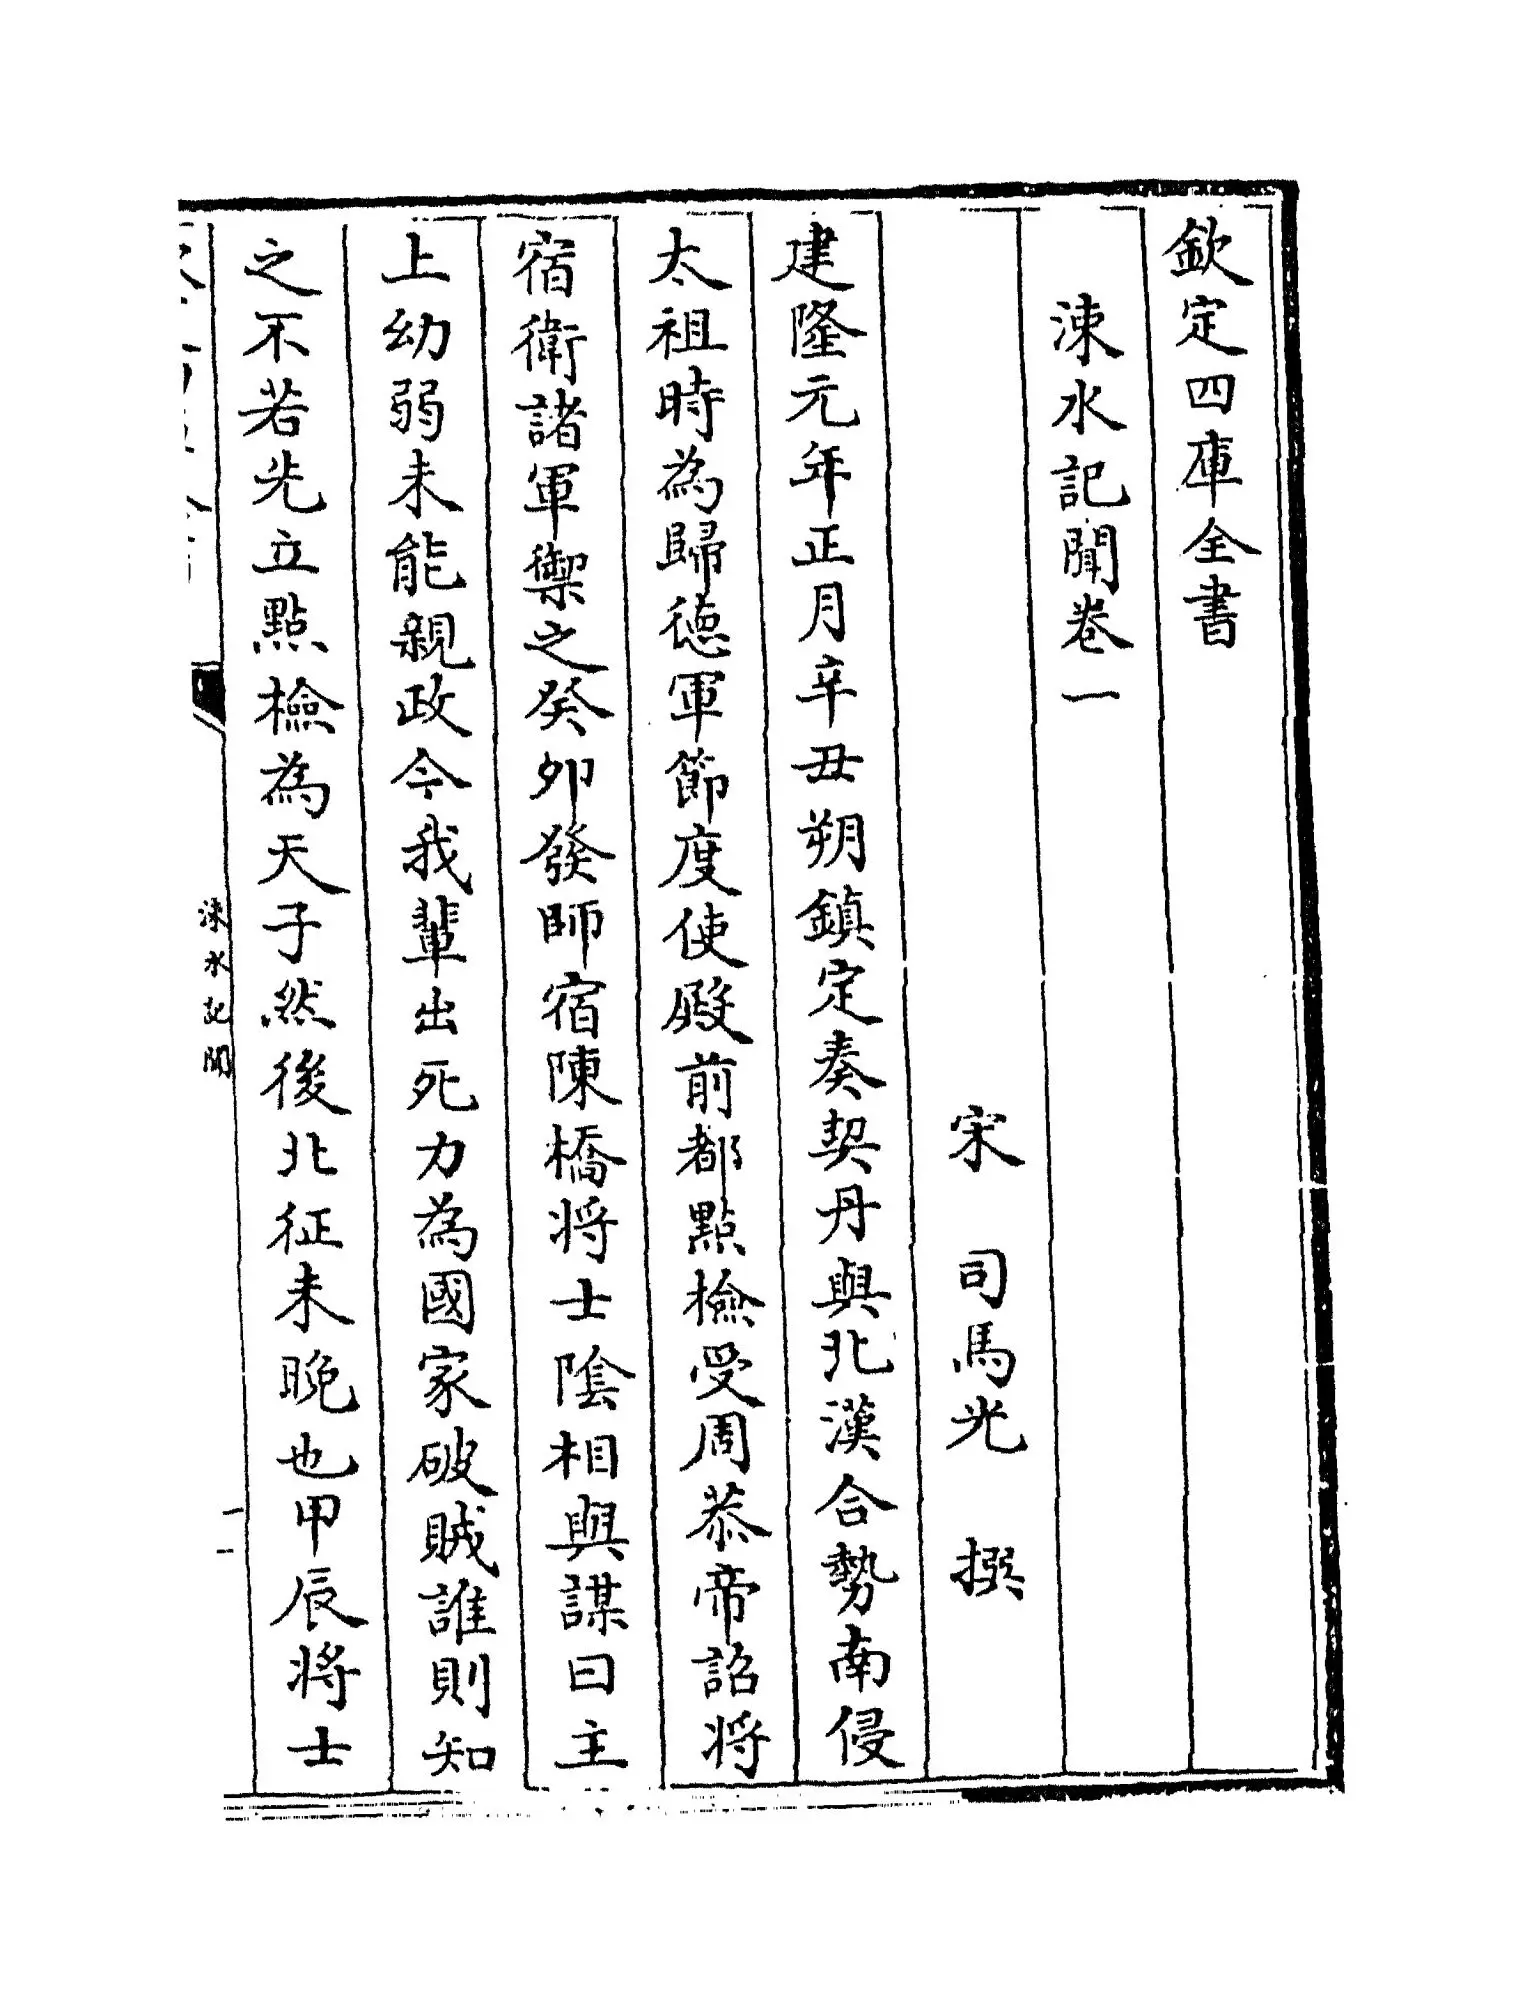 欽定四庫全書
涑水記聞卷一
宋 司馬光 撰
建隆元年正月辛丑朔鎮定奏契丹與北漢合勢南侵
太祖時為歸德軍節度使殿前都點檢受周恭帝詔將
宿衛諸軍禦之癸卯發師宿陳橋將士陰相與謀曰主
上幼弱未能親政今我輩出死力為國家破賊誰則知
之不若先立點檢為天子然後北征未晚也甲辰將士
涑水記聞
一